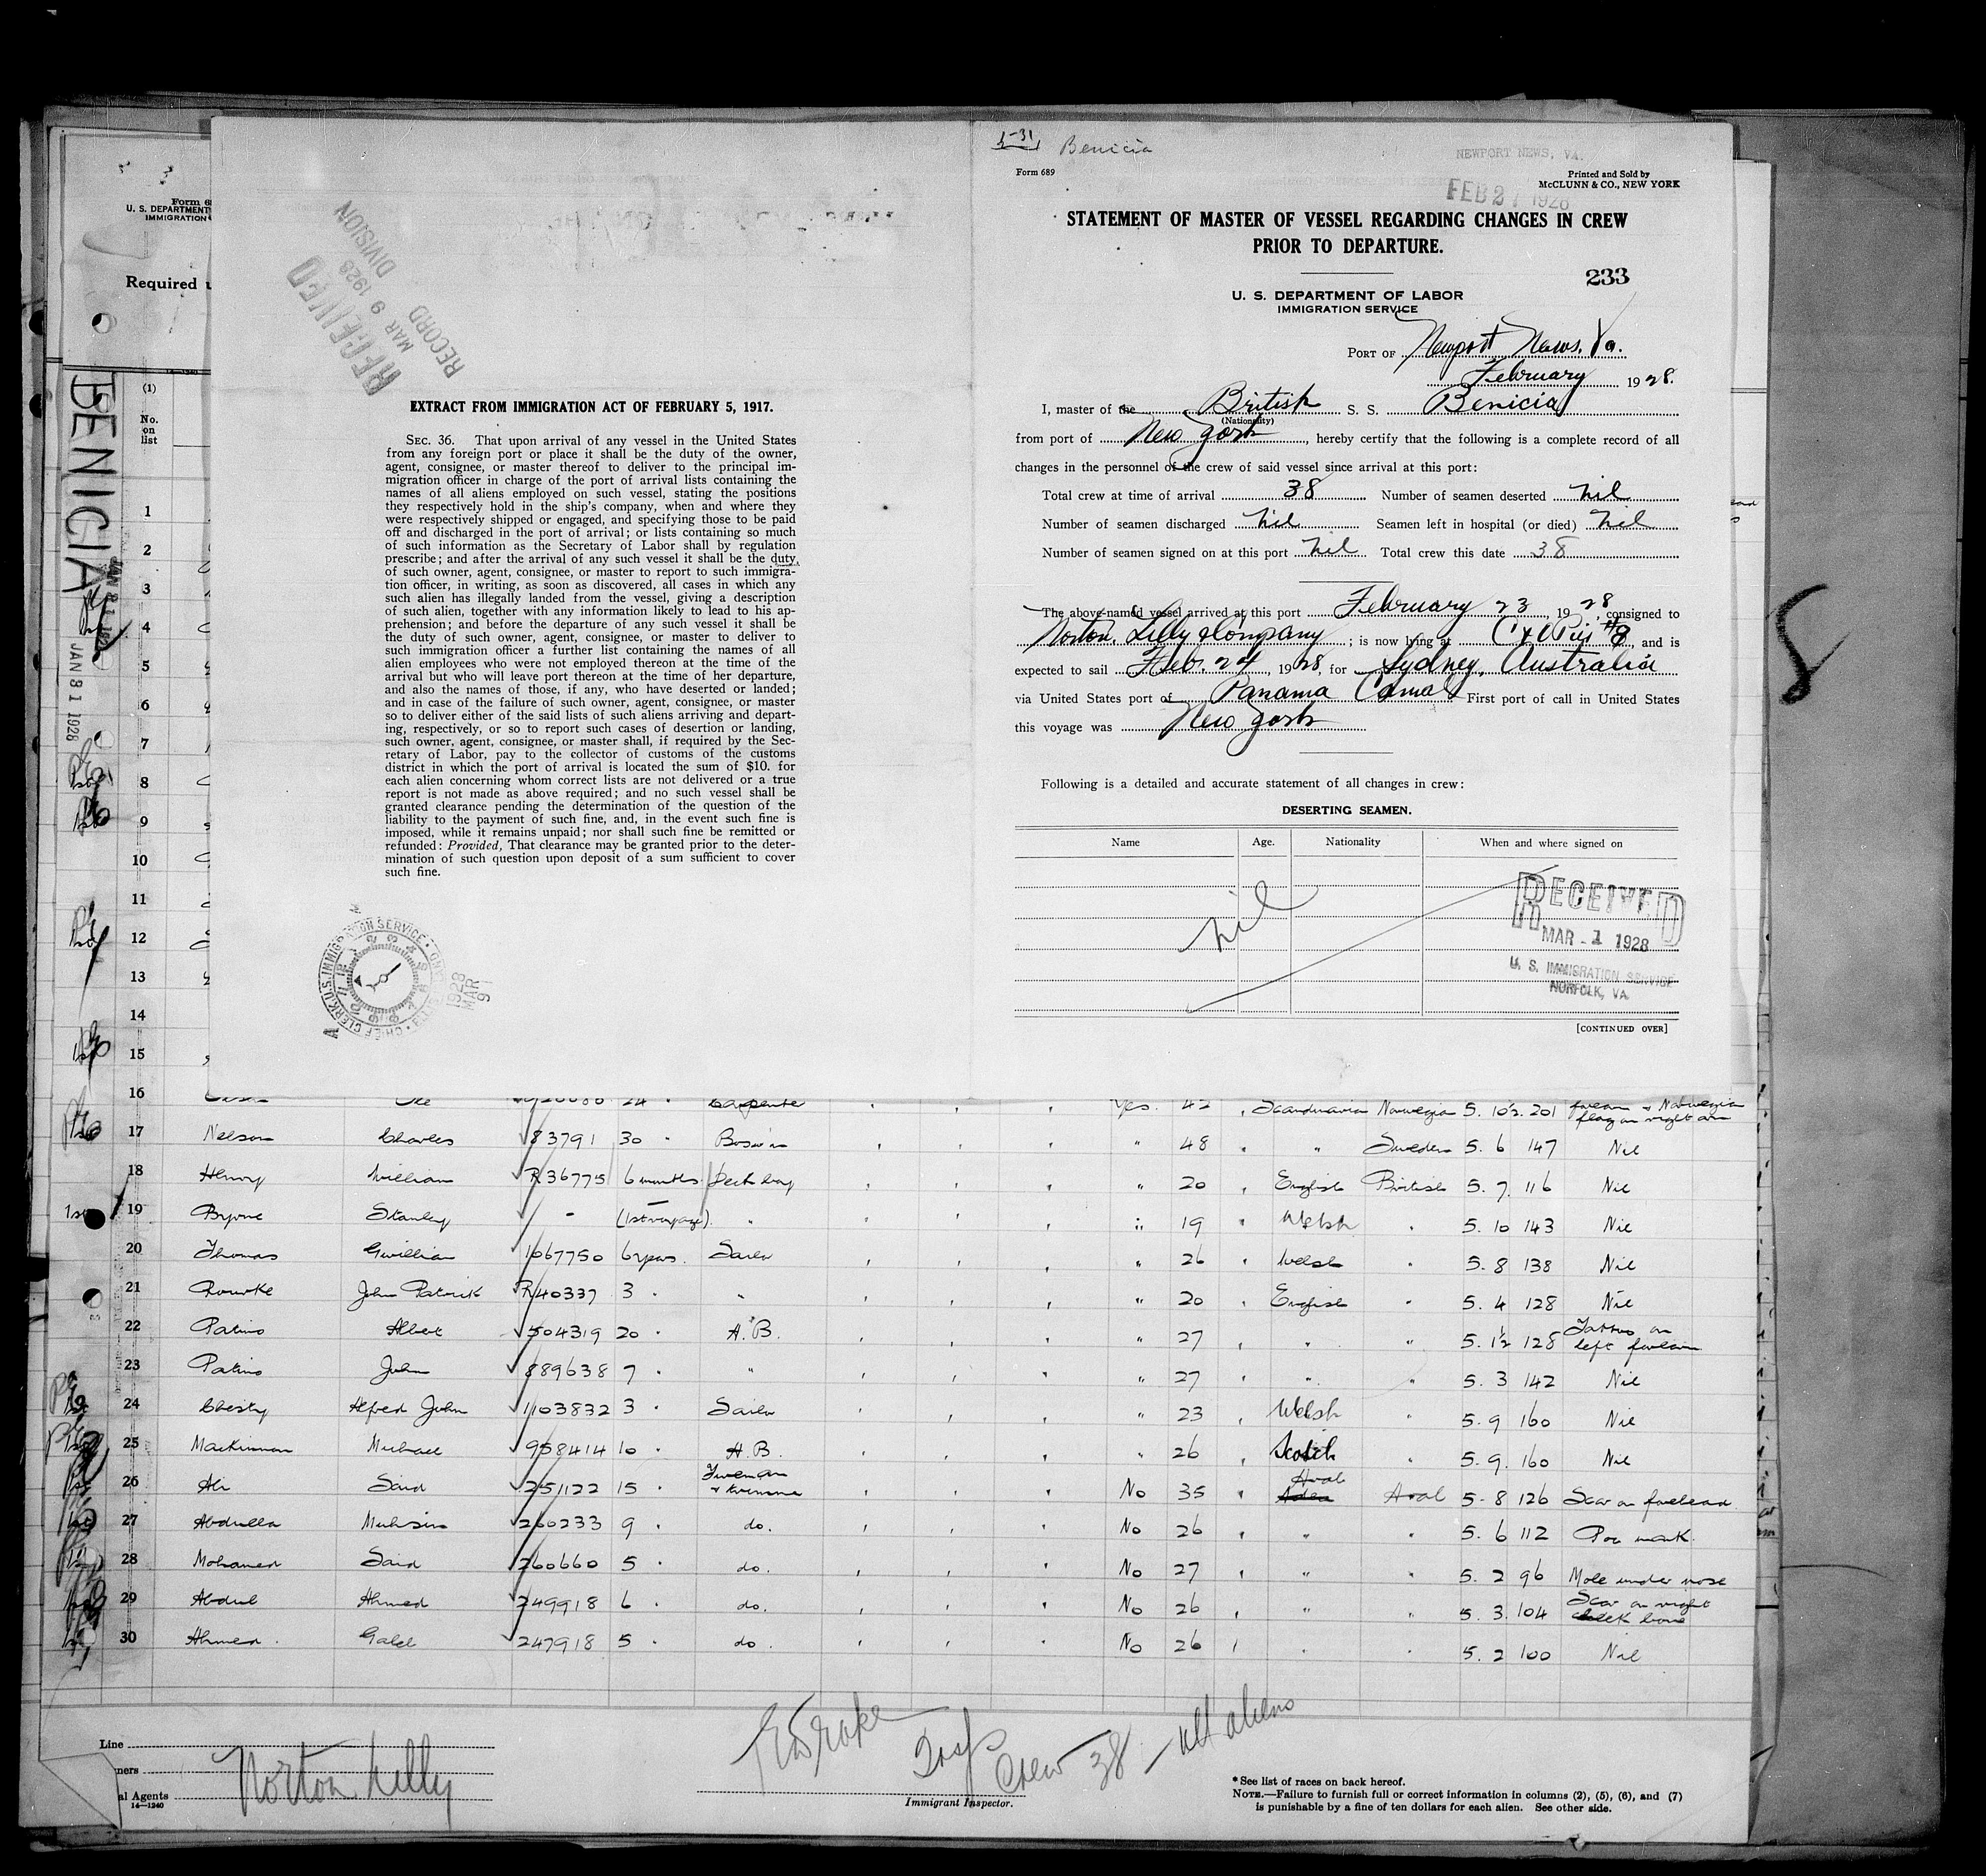 Form 68
U. S. DEPARTMENT
IMMIGRATION
Required u
(1)
No.
on
list
BENICIA
JAN 31 1928
RECEIVED
MAR 9 1928
RECORD DIVISION
EXTRACT FROM IMMIGRATION ACT OF FEBRUARY 5, 1917.
SEC. 36. That upon arrival of any vessel in the United States
from any foreign port or place it shall be the duty of the owner,
agent, consignee, or master thereof to deliver to the principal im-
migration officer in charge of the port of arrival lists containing the
names of all aliens employed on such vessel, stating the positions
they respectively hold in the ship's company, when and where they
were respectively shipped or engaged, and specifying those to be paid
off and discharged in the port of arrival; or lists containing so much
of such information as the Secretary of Labor shall by regulation
prescribe; and after the arrival of any such vessel it shall be the duty
of such owner, agent, consignee, or master to report to such immigra-
tion officer, in writing, as soon as discovered, all cases in which any
such alien has illegally landed from the vessel, giving a description
of such alien, together with any information likely to lead to his ap-
prehension; and before the departure of any such vessel it shall be
the duty of such owner, agent, consignee, or master to deliver to
such immigration officer a further list containing the names of all
alien employees who were not employed thereon at the time of the
arrival but who will leave port thereon at the time of her departure,
and also the names of those, if any, who have deserted or landed;
and in case of the failure of such owner, agent, consignee, or master
so to deliver either of the said lists of such aliens arriving and depart-
ing, respectively, or so to report such cases of desertion or landing,
such owner, agent, consignee, or master shall, if required by the Sec-
retary of Labor, pay to the collector of customs of the customs
district in which the port of arrival is located the sum of $10. for
each alien concerning whom correct lists are not delivered or a true
report is not made as above required; and no such vessel shall be
granted clearance pending the determination of the question of the
liability to the payment of such fine, and, in the event such fine is
imposed, while it remains unpaid; nor shall such fine be remitted or
refunded: Provided, That clearance may be granted prior to the deter-
mination of such question upon deposit of a sum sufficient to cover
such fine.
CHIEF CLERK U.S. IMMIGRATION SERVICE
1928 MAR 9
5-31 Benicia
NEWPORT NEWS, VA.
Form 689
Printed and Sold by
McCLUNN & CO., NEW YORK
FEB 27 1928
STATEMENT OF MASTER OF VESSEL REGARDING CHANGES IN CREW
PRIOR TO DEPARTURE.
233
U. S. DEPARTMENT OF LABOR
IMMIGRATION SERVICE
PORT OF Newport News, Va.
February 1928.
I, master of the British S. S. Benicia
(Nationality)
from port of New York, hereby certify that the following is a complete record of all
changes in the personnel of the crew of said vessel since arrival at this port:
Total crew at time of arrival 38 Number of seamen deserted nil
Number of seamen discharged nil Seamen left in hospital (or died) nil
Number of seamen signed on at this port nil Total crew this date 38
The above-named vessel arrived at this port February 23, 1928, consigned to
Norton, Lilly & Company; is now lying at C & O Pier #8, and is
expected to sail Feb. 24, 1928, for Sydney, Australia
via United States port of Panama Canal First port of call in United States
this voyage was New York
Following is a detailed and accurate statement of all changes in crew:
DESERTING SEAMEN.
Name Age. Nationality When and where signed on
nil
RECEIVED
MAR - 1 1928
U. S. IMMIGRATION SERVICE
NORFOLK, VA.
[CONTINUED OVER]
8
1
2
3
4
5
6
7
8
9
10
11
12
13
14
15
16 Carpenter Yes. 42 Scandinavian Norwegian 5. 10½. 201 forearm & Norwegian flag on right arm
17 Nelson Charles 83791 30 " Bos'n " 48 " Sweden 5. 6 147 Nil
18 Henry William R36775 6 months Deck boy " 20 English British 5. 7. 116 Nil
19 Byrne Stanley - (1st voyage) " " 19 Welsh " 5. 10 143 Nil
20 Thomas Gwilliam 1067750 6 yrs. Sailor " 26 Welsh " 5. 8 138 Nil
21 Rourke John Patrick R40337 3 " " " 20 English " 5. 4 128 Nil
22 Patino Albert 504319 20 " A.B. " 27 " " 5. 1½ 128 Tattoo on left forearm
23 Patino John 889638 7 " " " 27 " " 5. 3 142 Nil
24 Chesty Alfred John 1103832 3 " Sailor " 23 Welsh " 5. 9 160 Nil
25 MacKinnon Michael 958414 10 " A.B. " 26 Scotch " 5. 9. 160 Nil
26 Ali Said 251122 15 " Fireman & trimmer No 35 Arab Arab 5-8 126 Scar on forehead
27 Abdulla Muhsin 260233 9 " do. No 26 " " 5. 6 112 Pox mark.
28 Mohamed Said 260660 5 " do. No 27 " " 5. 2 96 Mole under nose
29 Abdul Ahmed 249918 6 " do. No 26 " " 5. 3. 104 Scar on right cheek bone
30 Ahmed Galel 247918 5 " do. No 26 " " 5. 2 100 Nil
Line
ners
al Agents Norton Lilly
14—1240
Crew 38 — all aliens
Immigrant Inspector.
* See list of races on back hereof.
NOTE.—Failure to furnish full or correct information in columns (2), (5), (6), and (7)
is punishable by a fine of ten dollars for each alien. See other side.